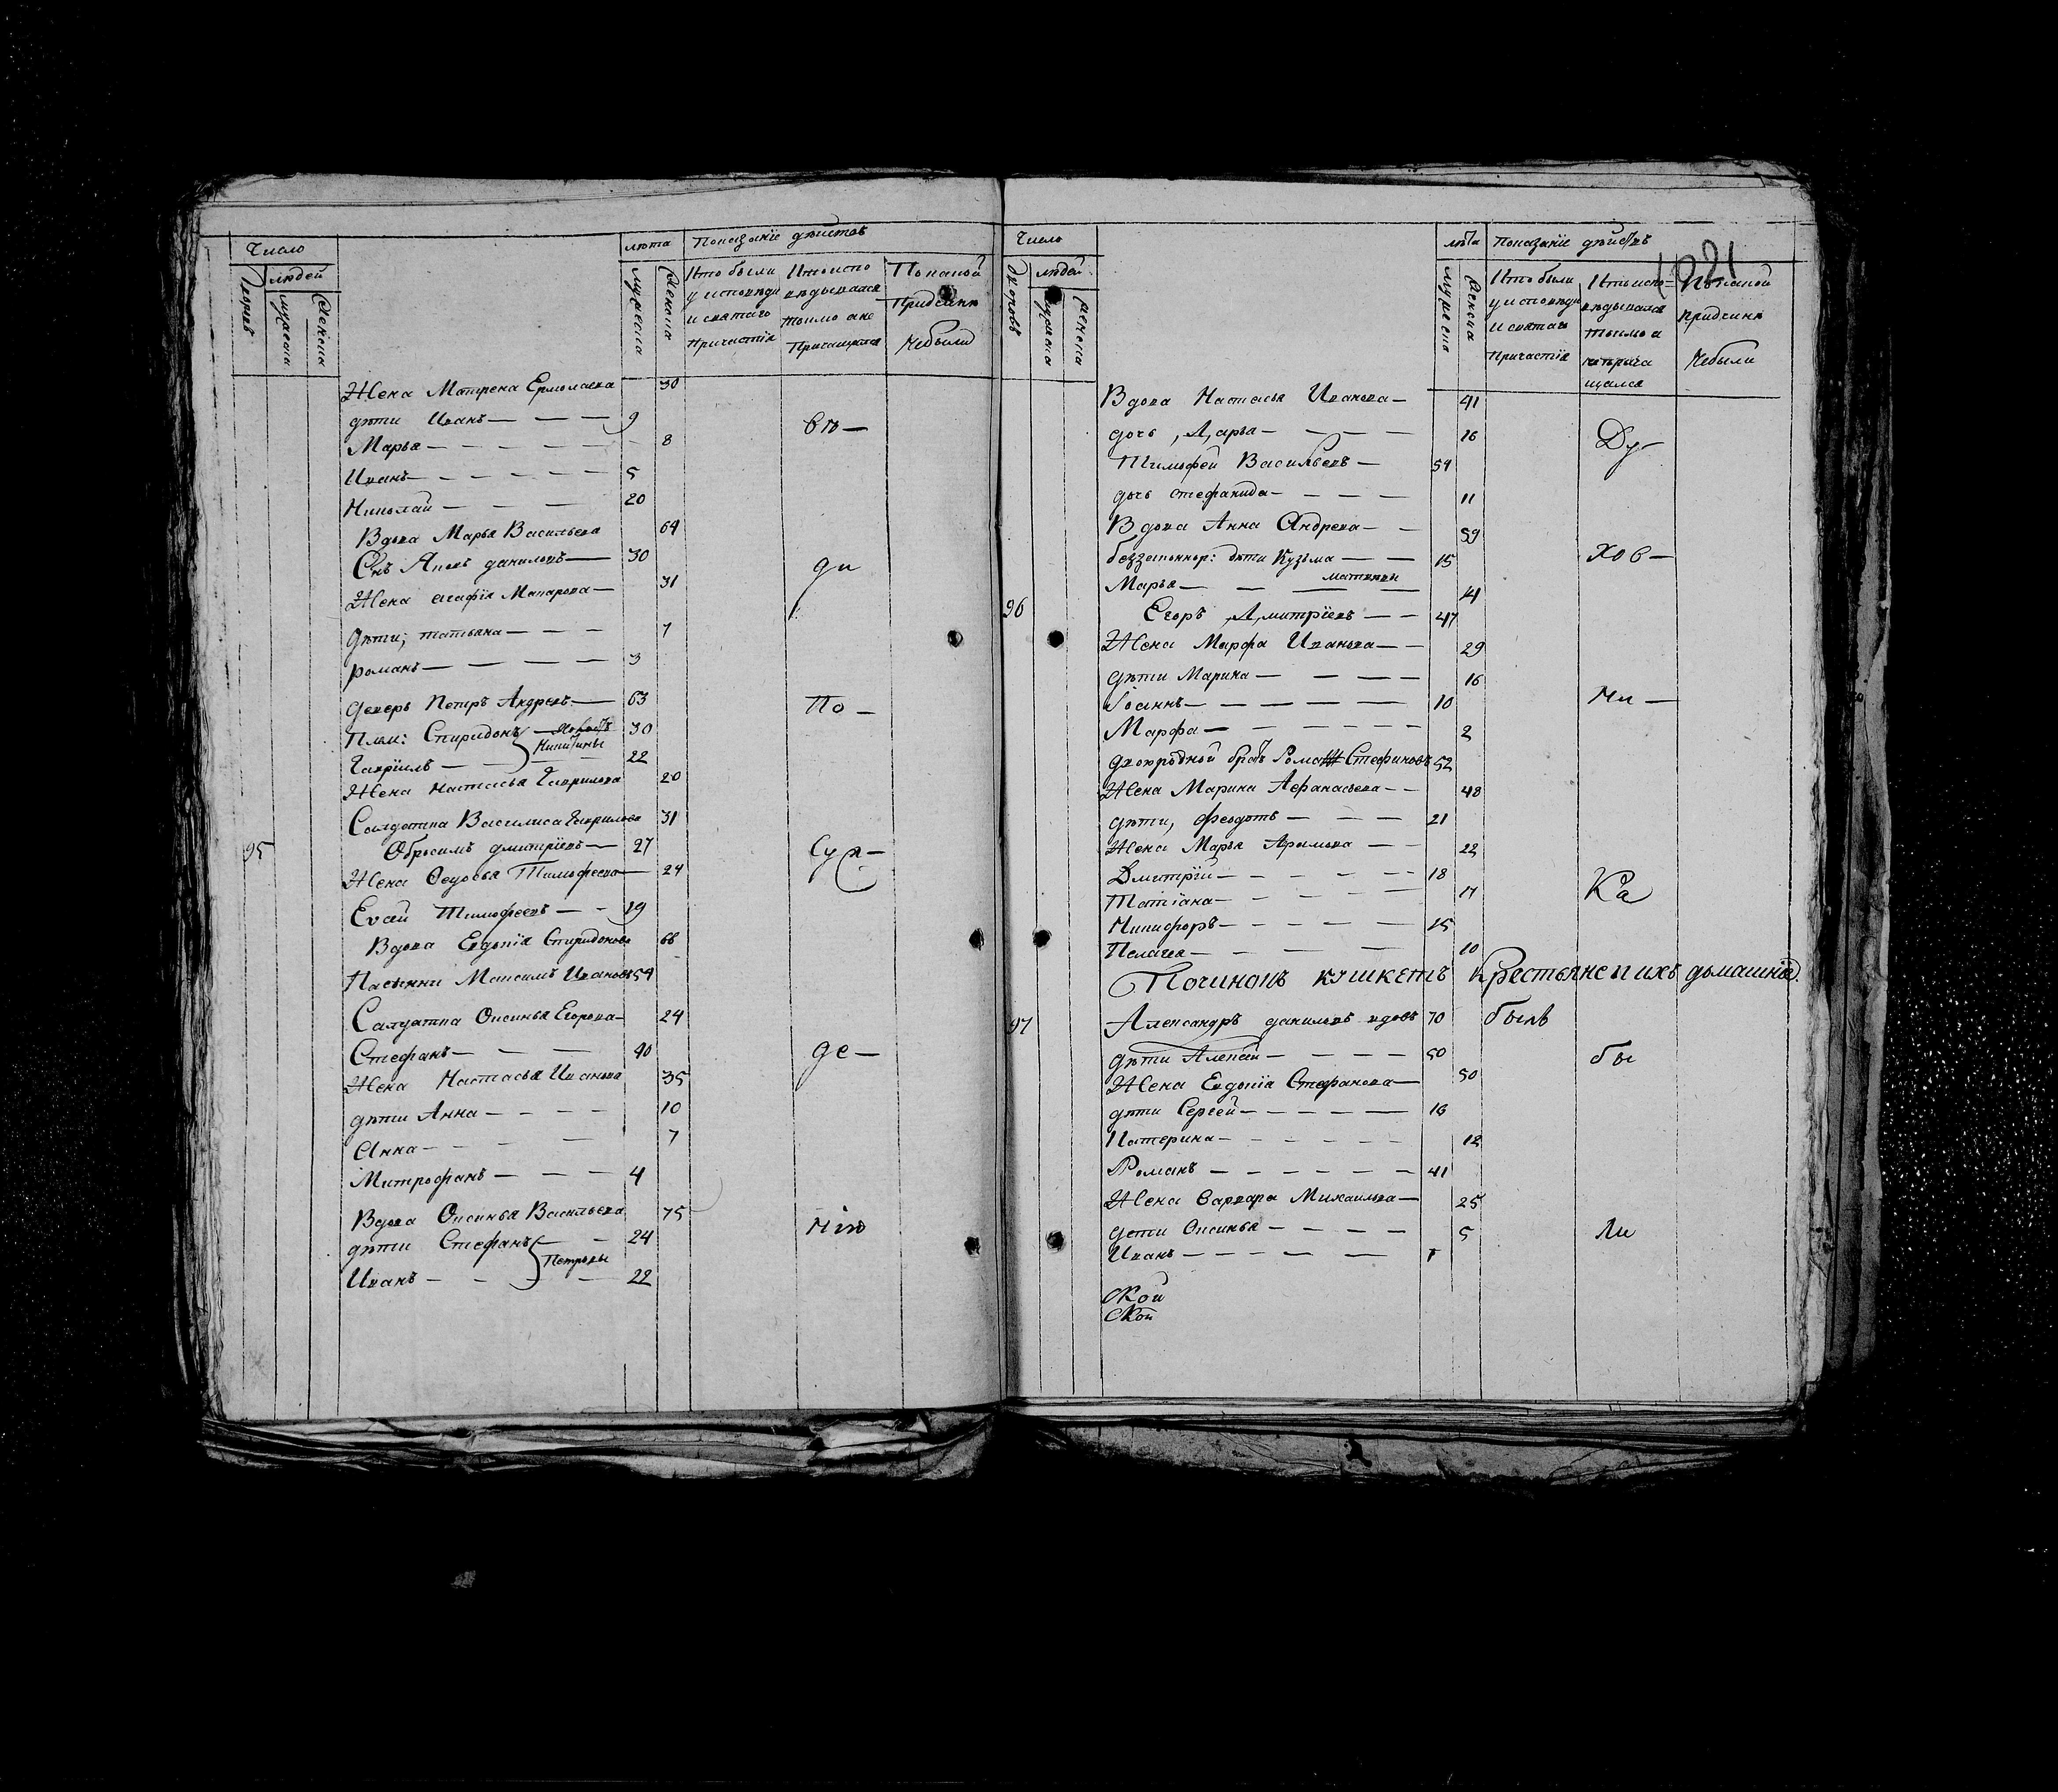 Число
людей
Дворовъ
мужеска
женска
лѣта
мужеска
женска
Показанїе дѣиствъ
Кто были у исповѣди и святаго Причастїя
Кто испо вѣдывался токмо а не Причащался
По какой Придчинѣ Небыли
Жена Матрена Ермолаева 30
дѣти Иванъ — — — 9
во —
Марья — — — 8
Иванъ — — — — 5
Николай — — — 20
Вдова Марья Васильева 64
Снъ Яковъ даниловъ — 30
ди
Жена агафїя Макарова — 31
дѣти, татьяна — — — 7
романъ — — — — 3
деверь Петръ Андреевъ — 63
По —
Плем: Спиридонъ — 30
Никитины
Гаврїилъ — — 22
Жена настасья Гаврилова 20
Салдатка Василиса Гаврилова 31
95 Обросимъ дмитрїевъ — 27
Сух —
Жена Федосья Тимофеева — 24
Тимофеевъ — — 19
Вдова Евдокїя Спиридонова 66
Пасынки Максимъ Ивановъ 54
Салдатка Оксинья Егорова — 24
Стефанъ — — — 40
де —
Жена Настасья Иванова 35
дѣти Анна — — — — 10
Анна — — — 7
Митрофанъ — — — 4
Вдова Оксинья Васильева 75
дѣти Стефанъ — — 24
Петровы
Иванъ — — — 22
1021
Число
людей
дворовъ
мужеска
женска
лѣта
мужеска
женска
Показанїе дѣйствъ
Кто были у исповѣди и святаго причастїя
Кто испо= вѣдывался токмо а не прича щался
По какой придчинѣ Небыли
Вдова Настасья Иванова — 41
дочь, Дарья — — — — 16
Ду —
Тимофей Васильевъ — 54
дочь стефанида — — — — 11
Вдова Анна Андреева — — 59
беззаконнор: дѣти Кузьма — — 15
хов —
Марья — — — — 14
96 Егоръ Дмитрїевъ — — 47
Жена Марфа Иванова — — 29
дѣти Марина — — — — 16
Іоаннъ — — — — — 10
Ни —
Марфа — — — — — 2
двоюродной братъ Романъ Стефановъ 52
Жена Марина Афанасьева — — 48
дѣти, Феодотъ — — — 21
Жена Марья — — 22
Дмитрїй — — — — — 18
Ка
Татїана — — — — 17
Никифоръ — — — — — 15
Пелагея — — — — 10
Починокъ кушкетъ Крестьяне и ихъ домашнїе.
97 Александръ даниловъ вдовъ 70 былъ
дѣти Алексѣй — — — — 50
бы
Жена Евдокїя Стефанова — 50
дѣти Сергей — — — — — 16
Катерина — — — — — — 12
Романъ — — — — — — 41
Жена Варвара Михаилова — 25
дети Оксинья — — — — 5
ли
Иванъ — — — — — 1
ской
ской